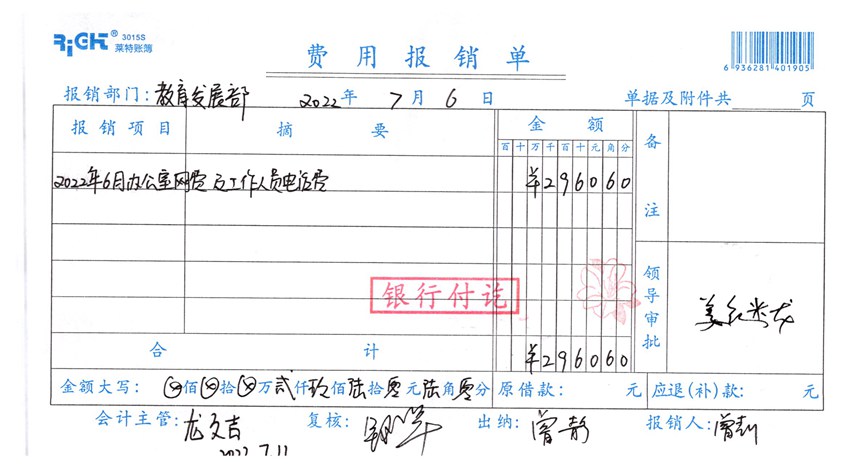 RiGHT® 3015S
莱特账簿
费用报销单
6 936281 401905
报销部门:教育发展部 2022年 7月 6日 单据及附件共 页
报销项目 摘要 金额 备注
百十万千百十元角分
2022年6月办公室网费及工作人员电话费 ¥296060
银行付讫
领导审批
合计 ¥296060
金额大写: ⊗佰⊗拾⊗万贰仟玖佰陆拾零元陆角零分 原借款: 元 应退(补)款: 元
会计主管:龙文吉 复核: 出纳:曾静 报销人:
2022.7.11